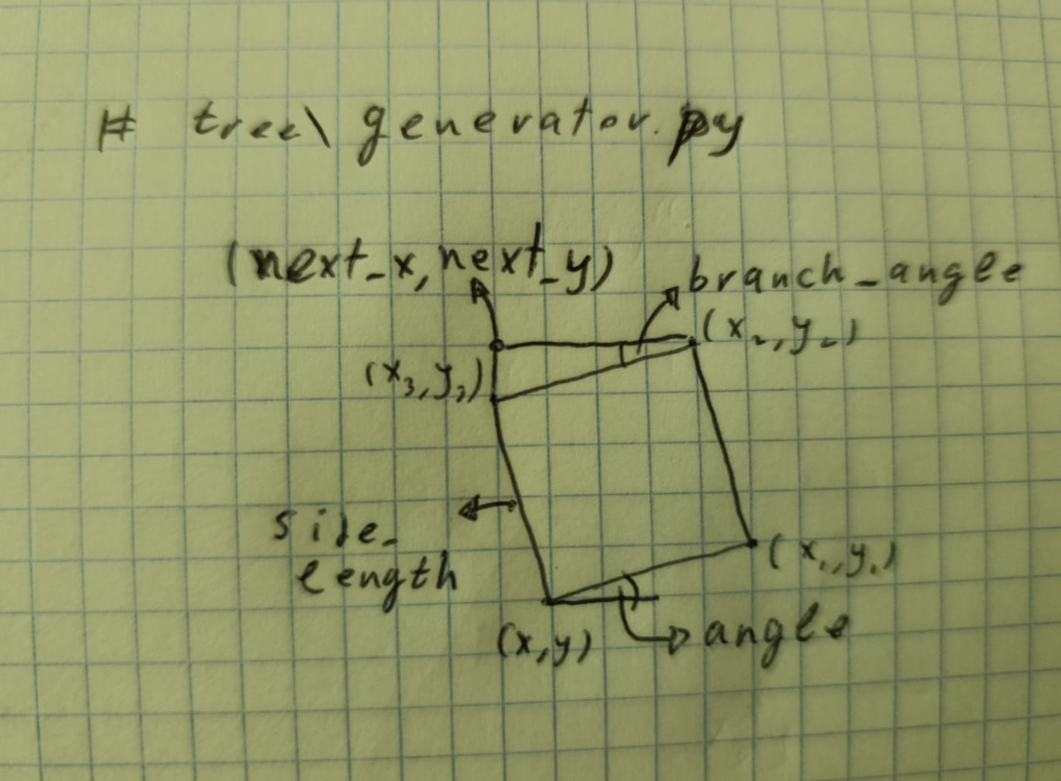 # tree\generator.py
(next_x, next_y)
branch_angle
(x₂, y₂)
(x₃, y₃)
side_
length
(x₁, y₁)
(x, y)
angle